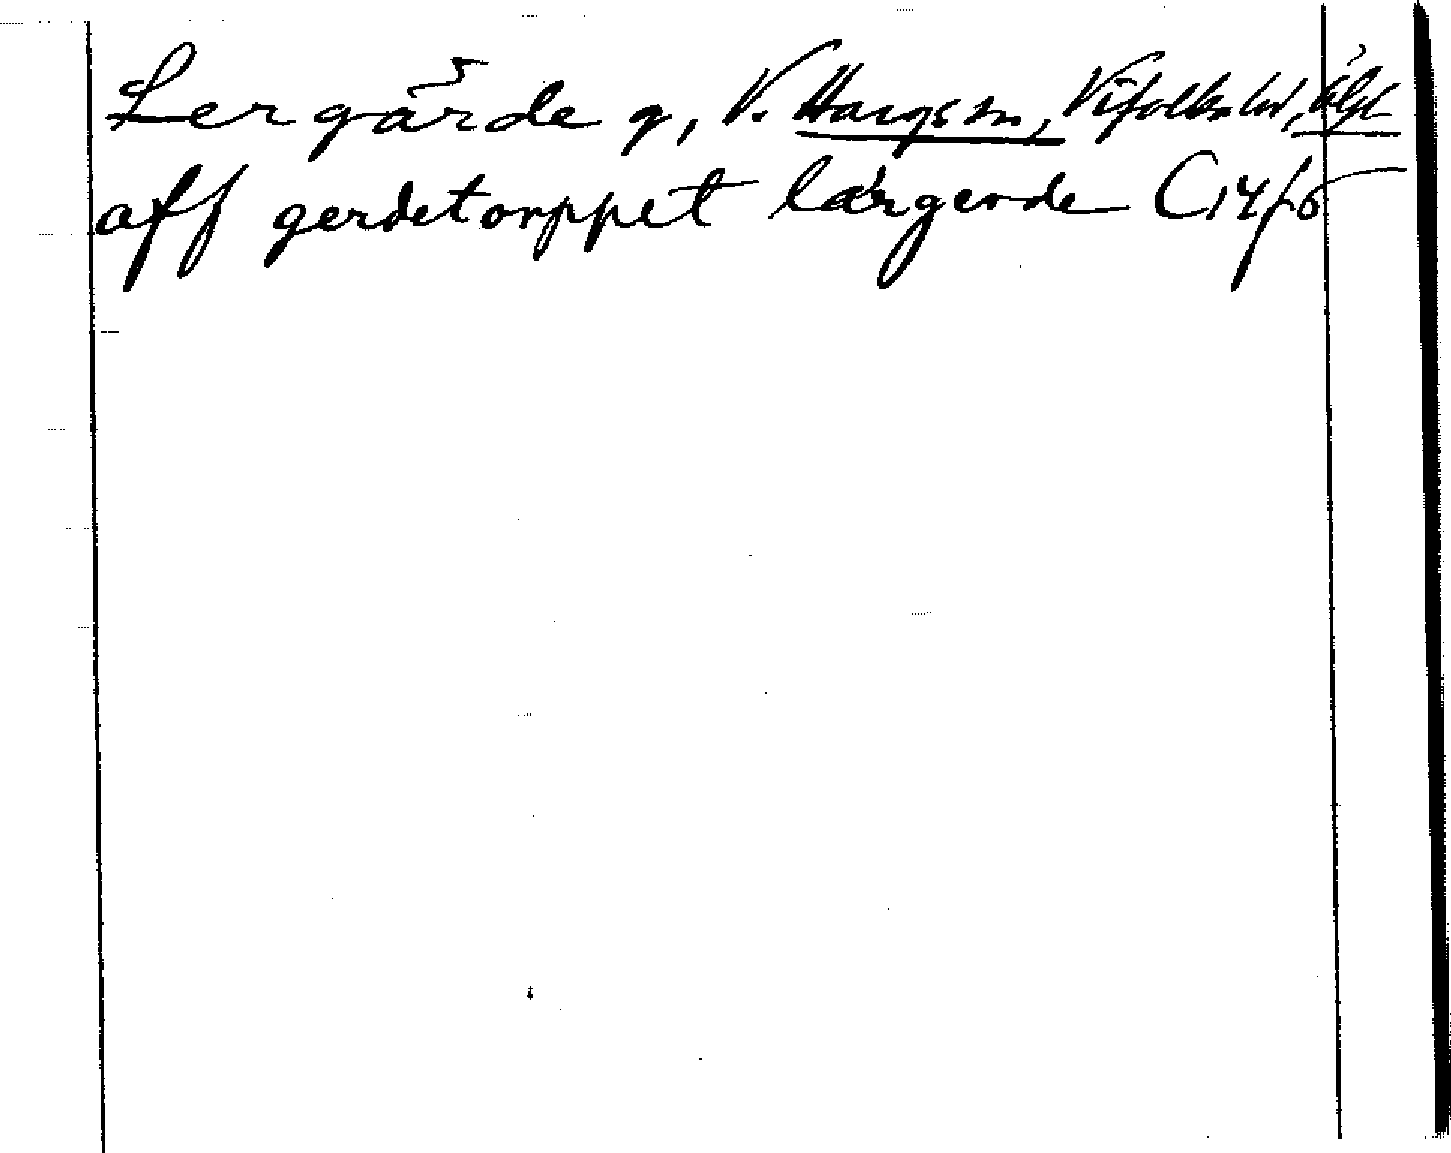 Lergärde g, V. Hargs sn, Vifolka hd, Ögl
aff gerdetorppet lærgerde C 14/5